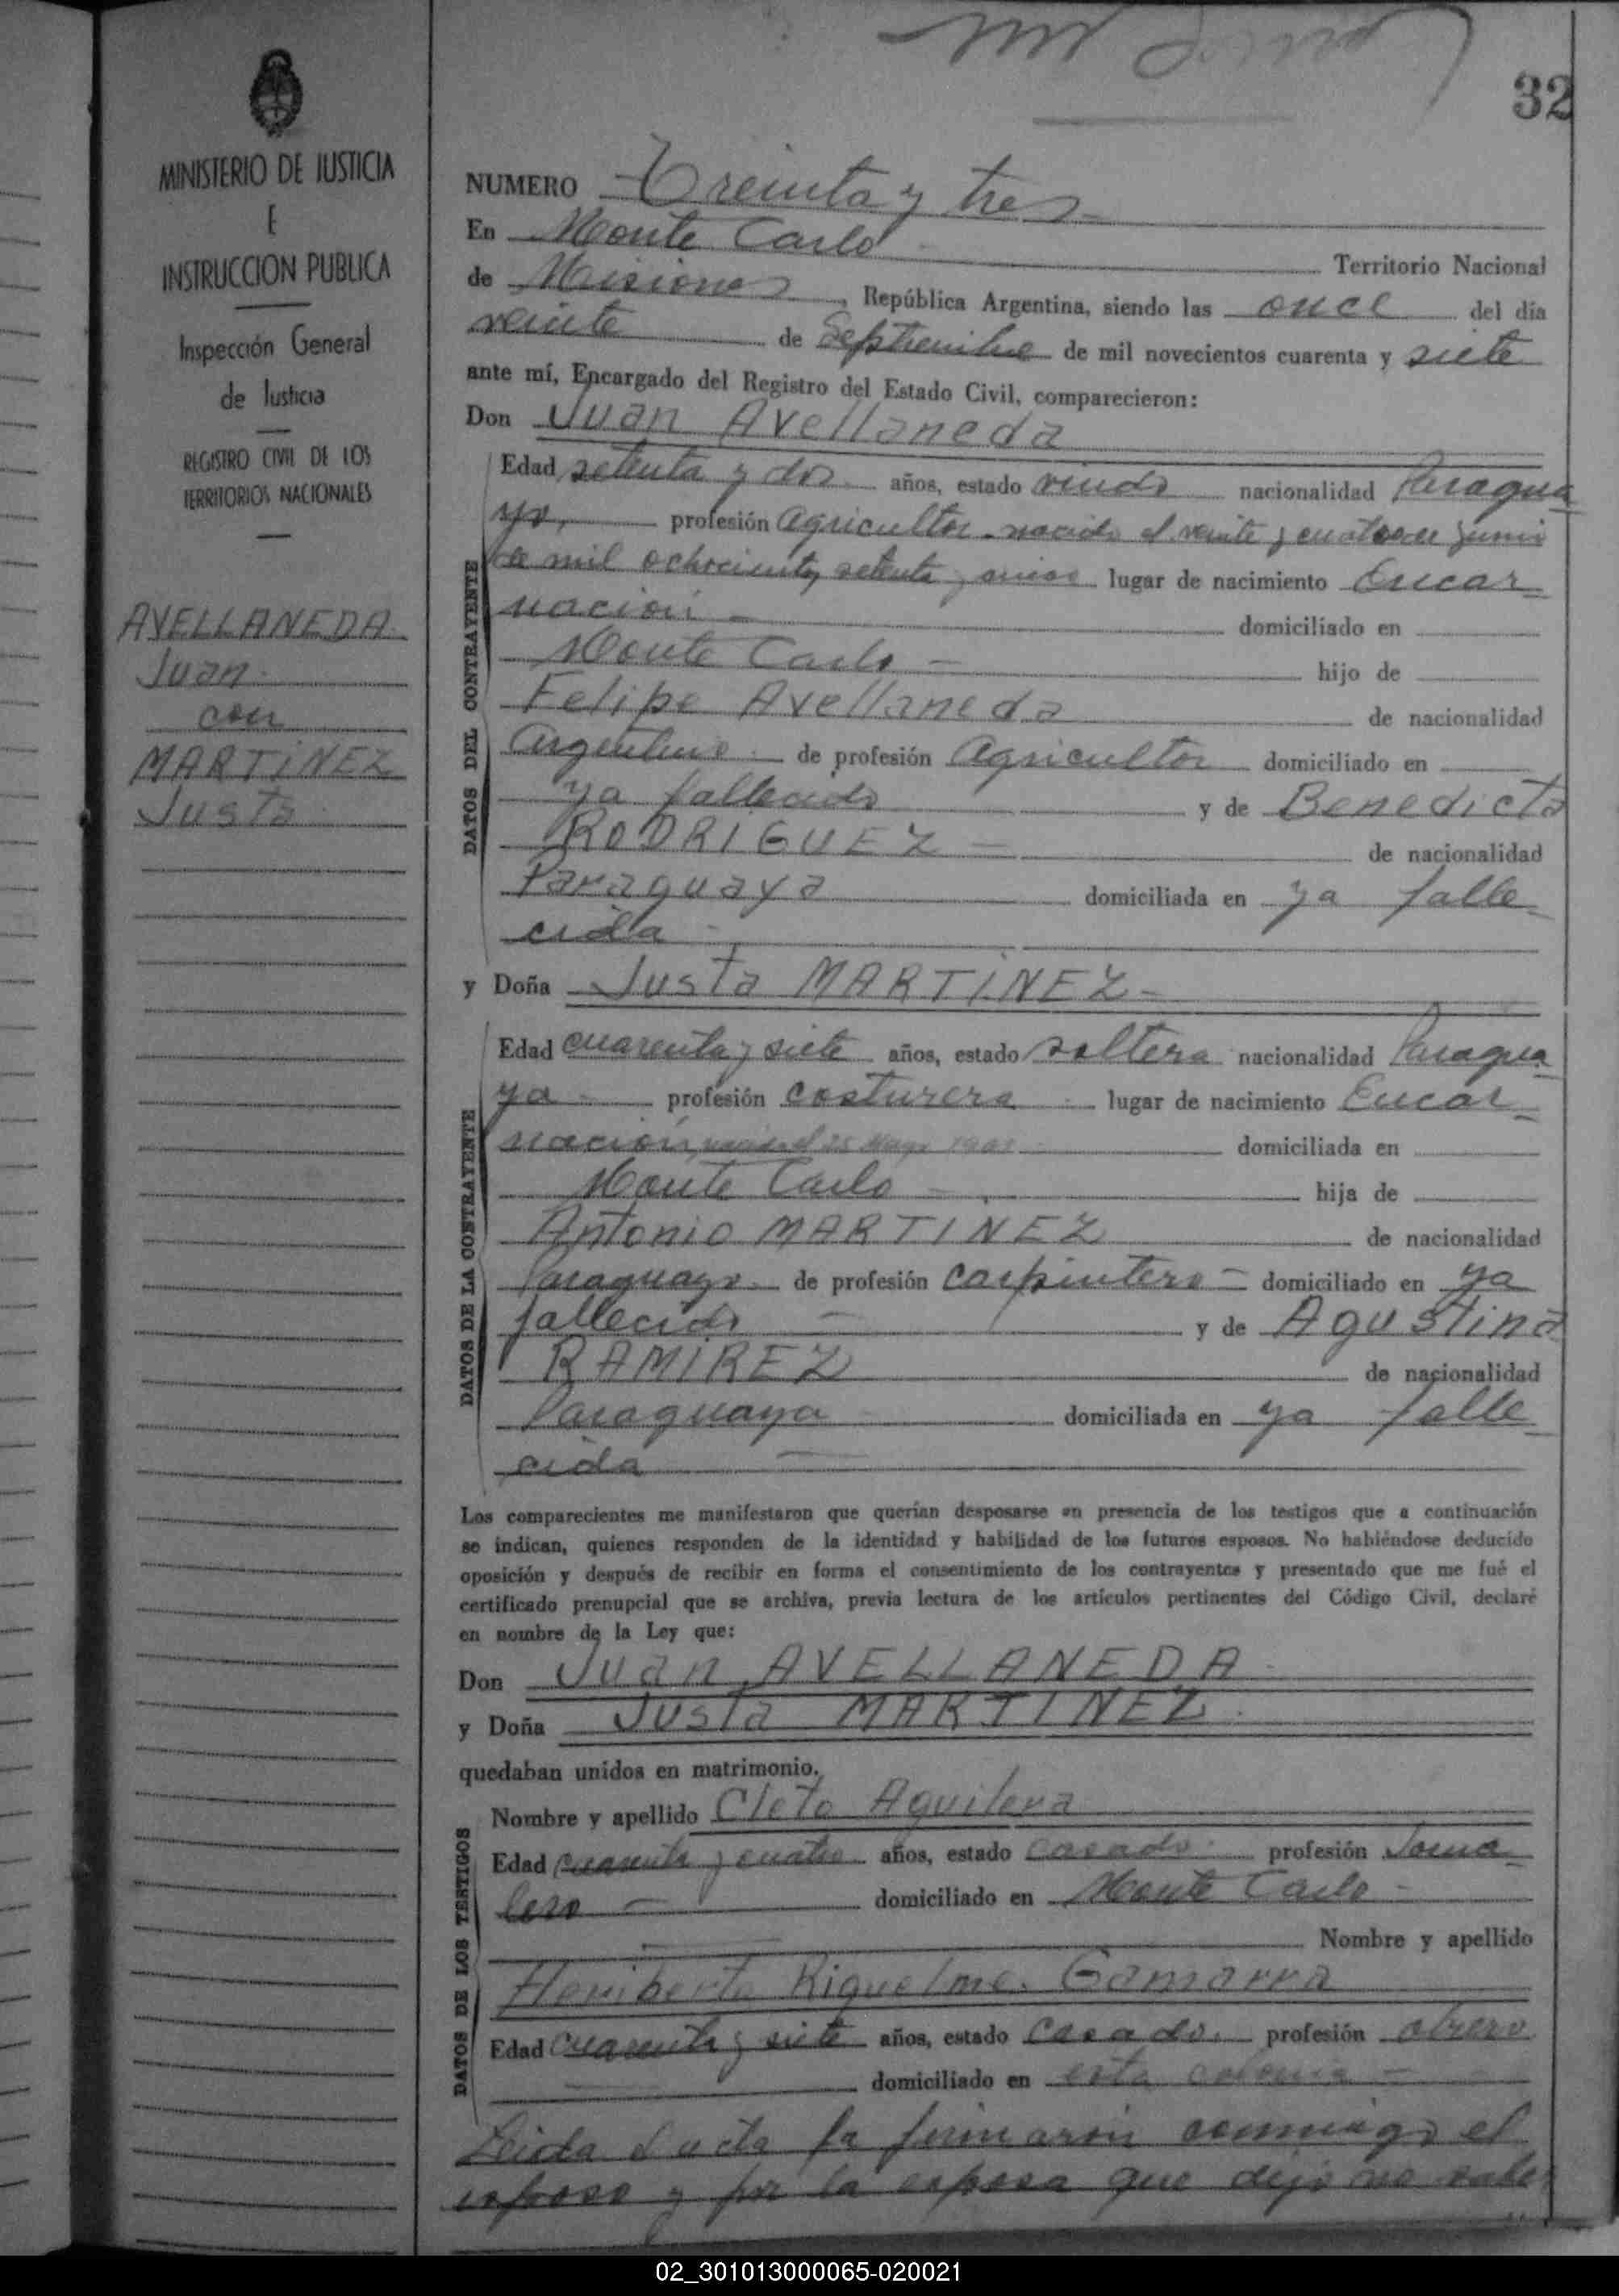 32
MINISTERIO DE JUSTICIA
E
INSTRUCCION PUBLICA
Inspección General
de Justicia
REGISTRO CIVIL DE LOS
TERRITORIOS NACIONALES
AVELLANEDA
Juan
con
MARTINEZ
Justa
NUMERO Treinta y tres
En Monte Carlo Territorio Nacional
de Misiones, República Argentina, siendo las once del día
veinte de Septiembre de mil novecientos cuarenta y siete
ante mí, Encargado del Registro del Estado Civil, comparecieron:
Don Juan Avellaneda
DATOS DEL CONTRAYENTE
Edad setenta y dos años, estado viudo nacionalidad Paragua
yo, profesión agricultor nacido el veinte y cuatro de junio
de mil ochocientos setenta y cinco lugar de nacimiento Encar
nación domiciliado en
Monte Carlo hijo de
Felipe Avellaneda de nacionalidad
Argentino de profesión Agricultor domiciliado en
ya fallecido y de Benedicta
RODRIGUEZ de nacionalidad
Paraguaya domiciliada en ya falle
cida
y Doña Justa MARTINEZ
DATOS DE LA CONTRAYENTE
Edad cuarenta y siete años, estado soltera nacionalidad Paragua
ya profesión costurera lugar de nacimiento Encar
nación, nacida el 25 Mayo domiciliada en
Monte Carlo hija de
Antonio MARTINEZ de nacionalidad
Paraguayo de profesión carpintero domiciliado en ya
fallecido y de Agustina
RAMIREZ de nacionalidad
Paraguaya domiciliada en ya falle
cida
Los comparecientes me manifestaron que querían desposarse en presencia de los testigos que a continuación
se indican, quienes responden de la identidad y habilidad de los futuros esposos. No habiéndose deducido
oposición y después de recibir en forma el consentimiento de los contrayentes y presentado que me fué el
certificado prenupcial que se archiva, previa lectura de los artículos pertinentes del Código Civil, declaré
en nombre de la Ley que:
Don Juan AVELLANEDA
y Doña Justa MARTINEZ
quedaban unidos en matrimonio.
DATOS DE LOS TESTIGOS
Nombre y apellido Cleto Aguilera
Edad cuarenta y cuatro años, estado casado profesión Jorna
lero domiciliado en Monte Carlo
Nombre y apellido
Heriberto Riquelme Gamarra
Edad cuarenta y siete años, estado casado profesión obrero
domiciliado en esta colonia
Leida el acta la firmaron conmigo el
esposo y por la esposa que dijo no saber
02_301013000065-020021